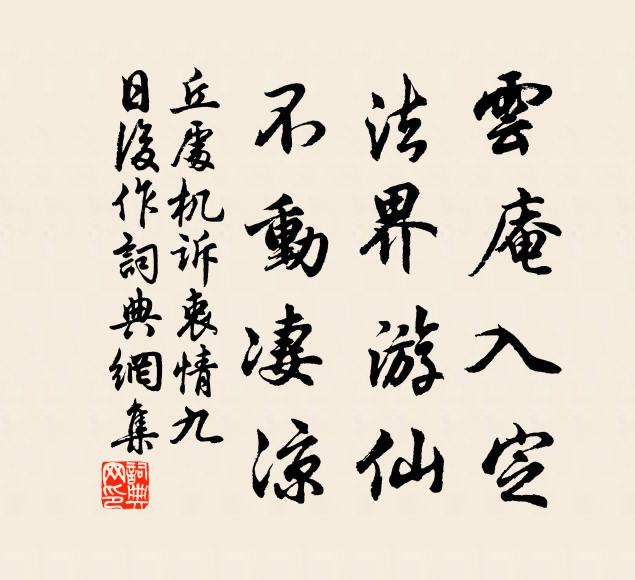 雲庵入定
法界游仙
不動凄涼
丘處机訴衷情九
日後作詞典網集
詞典
网印